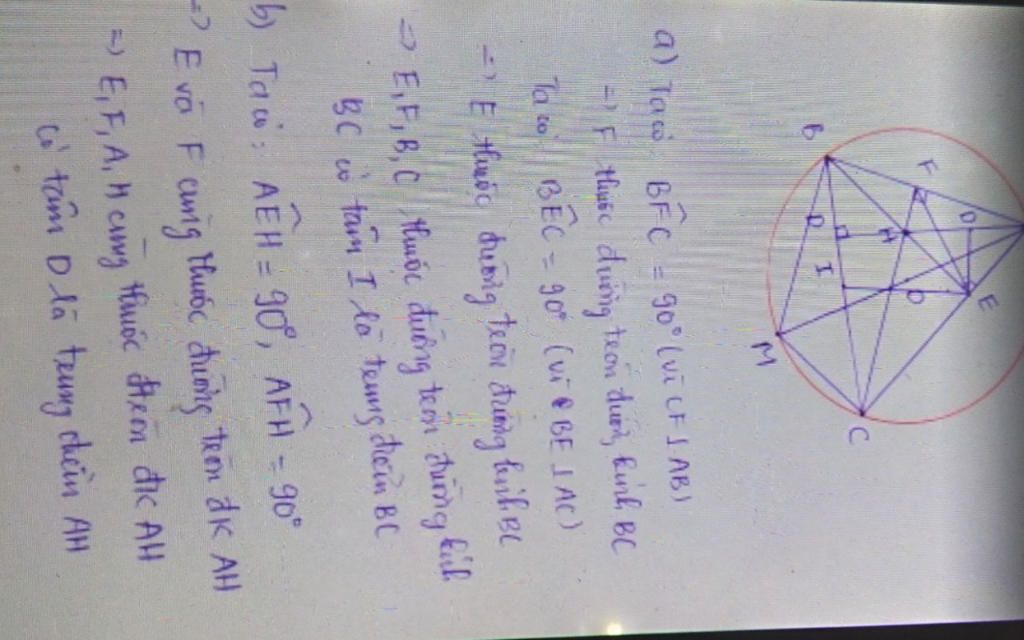 B
F
D
E
D
H
I
O
M
C
a) Ta có: BFC = 90° (vì CF ⊥ AB)
=> F thuộc đường tròn đường kính BC
Ta có: BEC = 90° (vì BE ⊥ AC)
=> E thuộc đường tròn đường kính BC
=> E, F, B, C thuộc đường tròn đường kính
BC có tâm I là trung điểm BC
b) Ta có: AEH = 90°, AFH = 90°
=> E và F cùng thuộc đường tròn đK AH
=> E, F, A, H cùng thuộc đtròn đK AH
có tâm D là trung điểm AH